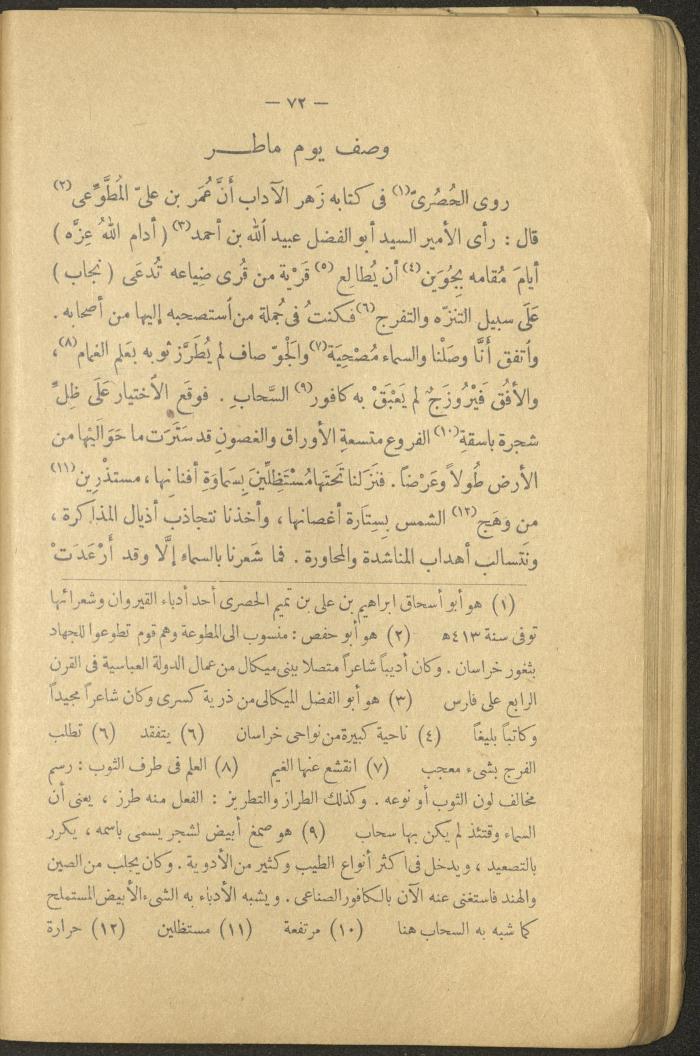 — ٧٢ —
وصف يوم ماطـــر
روى الحُصُرىّ(١) فى كتابه زَهر الآداب أَنَّ عُمَر بن علىّ المُطَّوِّعى(٢)
قال : رأى الأمير السيد أبو الفضل عبيد ٱلله بن أحمد(٣) ( أدام ٱللهُ عِزَّه )
أيامَ مُقامه بِجُوَين(٤) أن يُطالِع(٥) قَرْية من قُرى ضِياعه تُدعَى ( نجاب )
عَلَى سبيل التنزّه والتفرج(٦) فكنتُ فى جُملة من ٱستصحبه إليها من أصحابه .
وٱتفق أَنَّا وصَلْنا والسماء مُصْحِيَة(٧) والجَوّ صاف لم يُطَرَّز ثوبه بعَلم الغمام(٨) ،
والأفُق فَيْرُوزَجٌ لم يَعْبَقْ به كافور(٩) السَّحابِ . فوقَع الأختيار عَلَى ظِلِّ
شجرة باسقةِ(١٠) الفروع متسعةِ الأوراق والغصونِ قد سَتَرَت ما حَوَاليْها من
الأرض طُولاً وعَرْضاً . فنَزَلنا تَحتَها مُسْتَظِلِّينَ بِسَماوَةِ أفنانها ، مستذْرِين(١١)
من وَهَج(١٢) الشمس بِسِتَارة أغصانها ، وأخذنا نتجاذب أذيال المذاكرة ،
ونتسالب أهداب المناشدة والمحاورة . فما شَعرنا بالسماء إلَّا وقد أَرْعَدَتْ
(١) هو أبو أسحاق ابراهيم بن على بن تميم الحصرى أحد أدباء القيروان وشعرائها
توفى سنة ٤١٣ه (٢) هو أبو حفص : منسوب الى المطوعة وهم قوم تطوعوا للجهاد
بثغور خراسان . وكان أديباً شاعراً متصلا ببنى ميكال من عمال الدولة العباسية فى القرن
الرابع على فارس (٣) هو أبو الفضل الميكالى من ذرية كسرى وكان شاعراً مجيداً
وكاتباً بليغاً (٤) ناحية كبيرة من نواحى خراسان (٦) يتفقد (٦) تطلب
الفرج بشىء معجب (٧) انقشع عنها الغيم (٨) العلم فى طرف الثوب : رسم
مخالف لون الثوب أو نوعه . وكذلك الطراز والتطريز : الفعل منه طرز ، يعنى أن
السماء وقتئذ لم يكن بها سحاب (٩) هو صمغ أبيض لشجر يسمى باسمه ، يكرر
بالتصعيد ، ويدخل فى اكثر أنواع الطيب وكثير من الأدوية . وكان يجلب من الصين
والهند فاستغنى عنه الآن بالكافور الصناعى . ويشبه الأدباء به الشىء الأبيض المستملح
كما شبه به السحاب هنا (١٠) مرتفعة (١١) مستظلين (١٢) حرارة